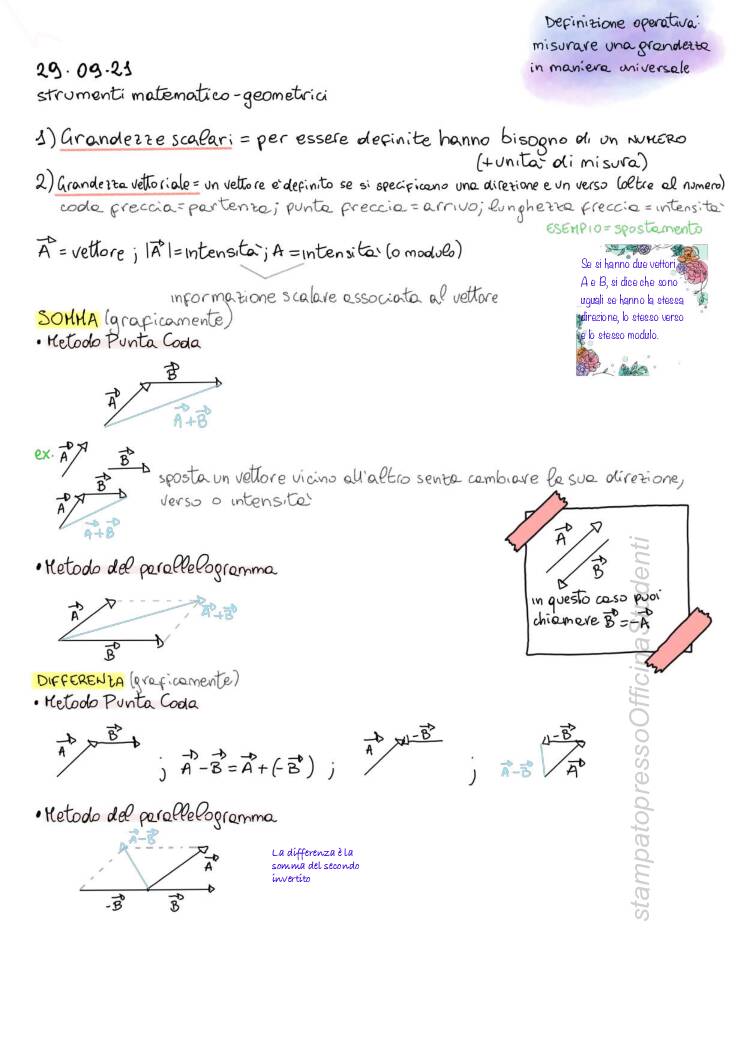 Definizione operativa:
misurare una grandezza
in maniera universale
29.09.21
strumenti matematico-geometrici
1) Grandezze scalari = per essere definite hanno bisogno di un NUMERO
(+unità di misura)
2) Grandezza vettoriale = un vettore è definito se si specificano una direzione e un verso (oltre al numero)
coda freccia = partenza; punta freccia = arrivo; lunghezza freccia = intensità
ESEMPIO = spostamento
A⃗ = vettore ; |A⃗| = intensità ; A = intensità (o modulo)
informazione scalare associata al vettore
Se si hanno due vettori,
A e B, si dice che sono
uguali se hanno la stessa
direzione, lo stesso verso
e lo stesso modulo.
SOMMA (graficamente)
• Metodo Punta Coda
B⃗
A⃗
A⃗+B⃗
ex. A⃗
B⃗
B⃗
A⃗
A⃗+B⃗
sposta un vettore vicino all'altro senza cambiare la sua direzione,
verso o intensità
• Metodo del parallelogramma
A⃗
A⃗+B⃗
B⃗
A⃗
B⃗
in questo caso puoi
chiamare B⃗=-A⃗
DIFFERENZA (graficamente)
• Metodo Punta Coda
A⃗ B⃗ ; A⃗-B⃗=A⃗+(-B⃗) ; A⃗ -B⃗ ; A⃗-B⃗ -B⃗ A⃗
• Metodo del parallelogramma
A⃗-B⃗
A⃗
-B⃗ B⃗
La differenza è la
somma del secondo
invertito
stampatopressoOfficinaStudenti